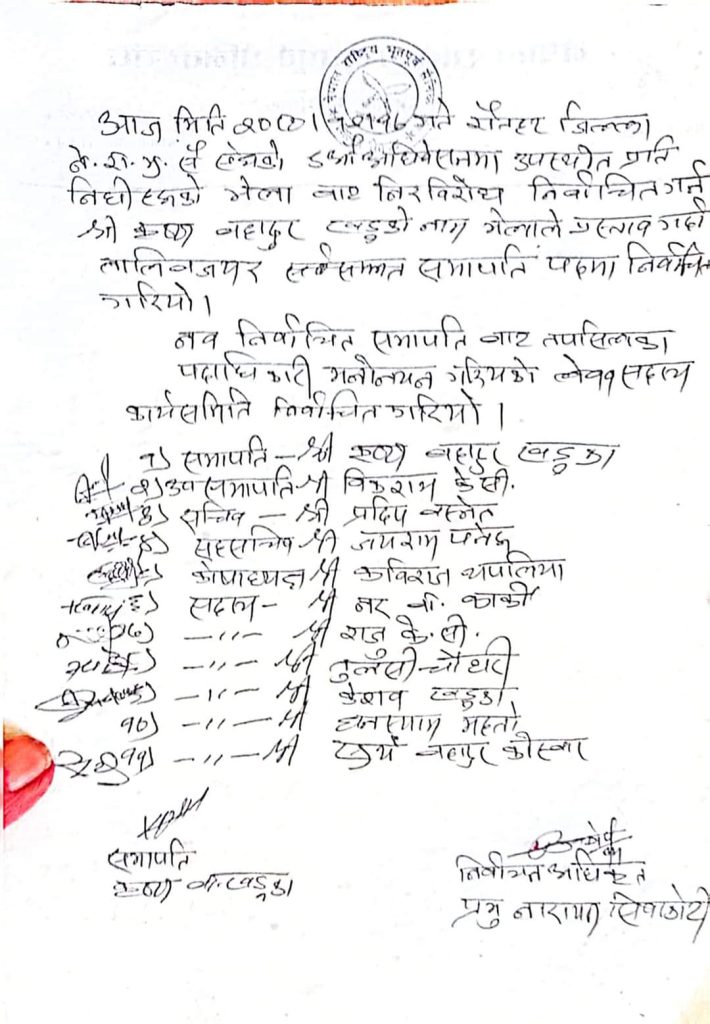 नेपाल राष्ट्रिय भूतपूर्व सैनिक
आज मिति गते रौतहट जिल्ला
ने. रा. भू. सै अधिवेशनमा उपस्थीत प्रति
निधी हरुको भेला बाट निरविरोध निर्वाचित गर्न
श्री कृष्ण बहादुर खड्काको नाम भेलाले प्रस्ताव गर्दा
सर्वसम्मत सभापति पदमा निर्वाचित
गरियो ।
नव निर्वाचित सभापति बाट तपसिलका
पदाधिकारी मनोनयन गरियको सदस्य
कार्यसमिति निर्वाचित गरियो ।
१) सभापति – श्री कृष्ण बहादुर खड्का
२) उप सभापति – श्री विकराम के.सी.
३) सचिव – श्री प्रदिप बस्नेत
४) सहसचिव श्री जयराम
५) कोषाध्यक्ष श्री कविराज थपलिया
६) सदस्य – श्री नर ब. कार्की
७) –〃– श्री राजु के. सी.
८) –〃– श्री तुलसी चौधरी
९) –〃– श्री केशव खड्का
१०) –〃– श्री घनश्याम महतो
११) –〃– श्री सुर्य बहादुर
सभापति
कृष्ण ब. खड्का
निर्वाचन अधिकृत
प्रभु नारायण सिवाकोटी